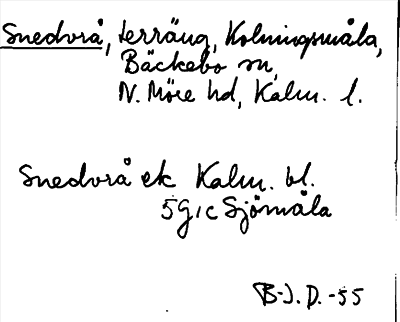 Snedvrå, terräng, Kolmingsmåla,
Bäckebo sn,
N. Möre hd, Kalm. l.
Snedvrå ek Kalm. bl.
5g1c Sjömåla
B-J. D. -55